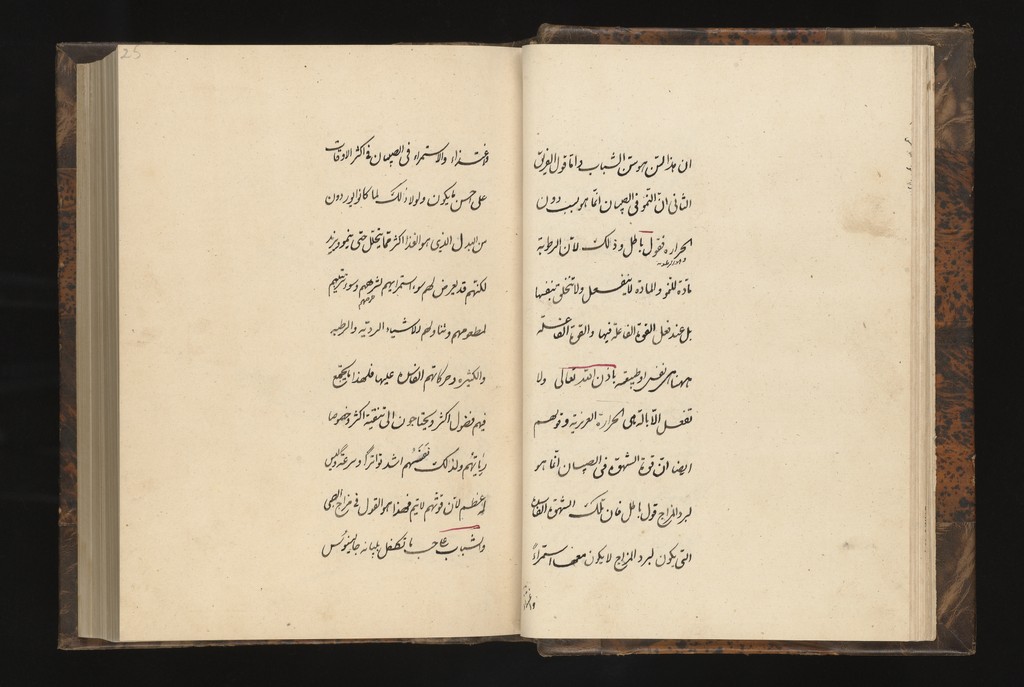 ان هذا السن هو سن الشباب واما قول الفريق
الثانى ان النمو فى الصبيان انما هو بسبب دون
الحراره فقول باطل وذلك لان الرطوبة
مادة للنمو والماده لا تنفعل ولا تتخلق بنفسها
بل عند فعل القوة الفاعلة فيها والقوة الفاعلة
ههنا هى نفس او طبيعة باذن الله تعالى ولا
تفعل الا بالة هى الحرارة الغريزية وقولهم
ايضا ان قوة الشهوة فى الصبيان انما هو
لبرد المزاج قول باطل فان تلك الشهوة الفاسدة
التى يكون لبرد المزاج لا يكون معها استمراءً
واغتذاء والاستمراء فى الصبيان فى اكثر الاوقات
على احسن ما يكون ولولا ذلك لما كانوا يوردون
من البدل الذى هو الغذا اكثر مما يتحلل حتى ينمو
لكنهم قد يعرض لهم سوء استمرايهم لشرههم وسوء ترتيبهم
لمطعومهم وتناولهم للاشياء الرديه والرطبه
والكثيره وحركاتهم الفاسده عليها فلهذا ما يجتمع
فيهم فضول اكثر ويحتاجون الى تنقية اكثر وخصوصا
رياتهم ولذلك نفسهم اشد تواترا وسرعة وليس
له عظم لان قوتهم لم يتم فهذا هو القول فى مزاج الصبى
والشباب على حسب ما تكفل ببيانه جالينوس